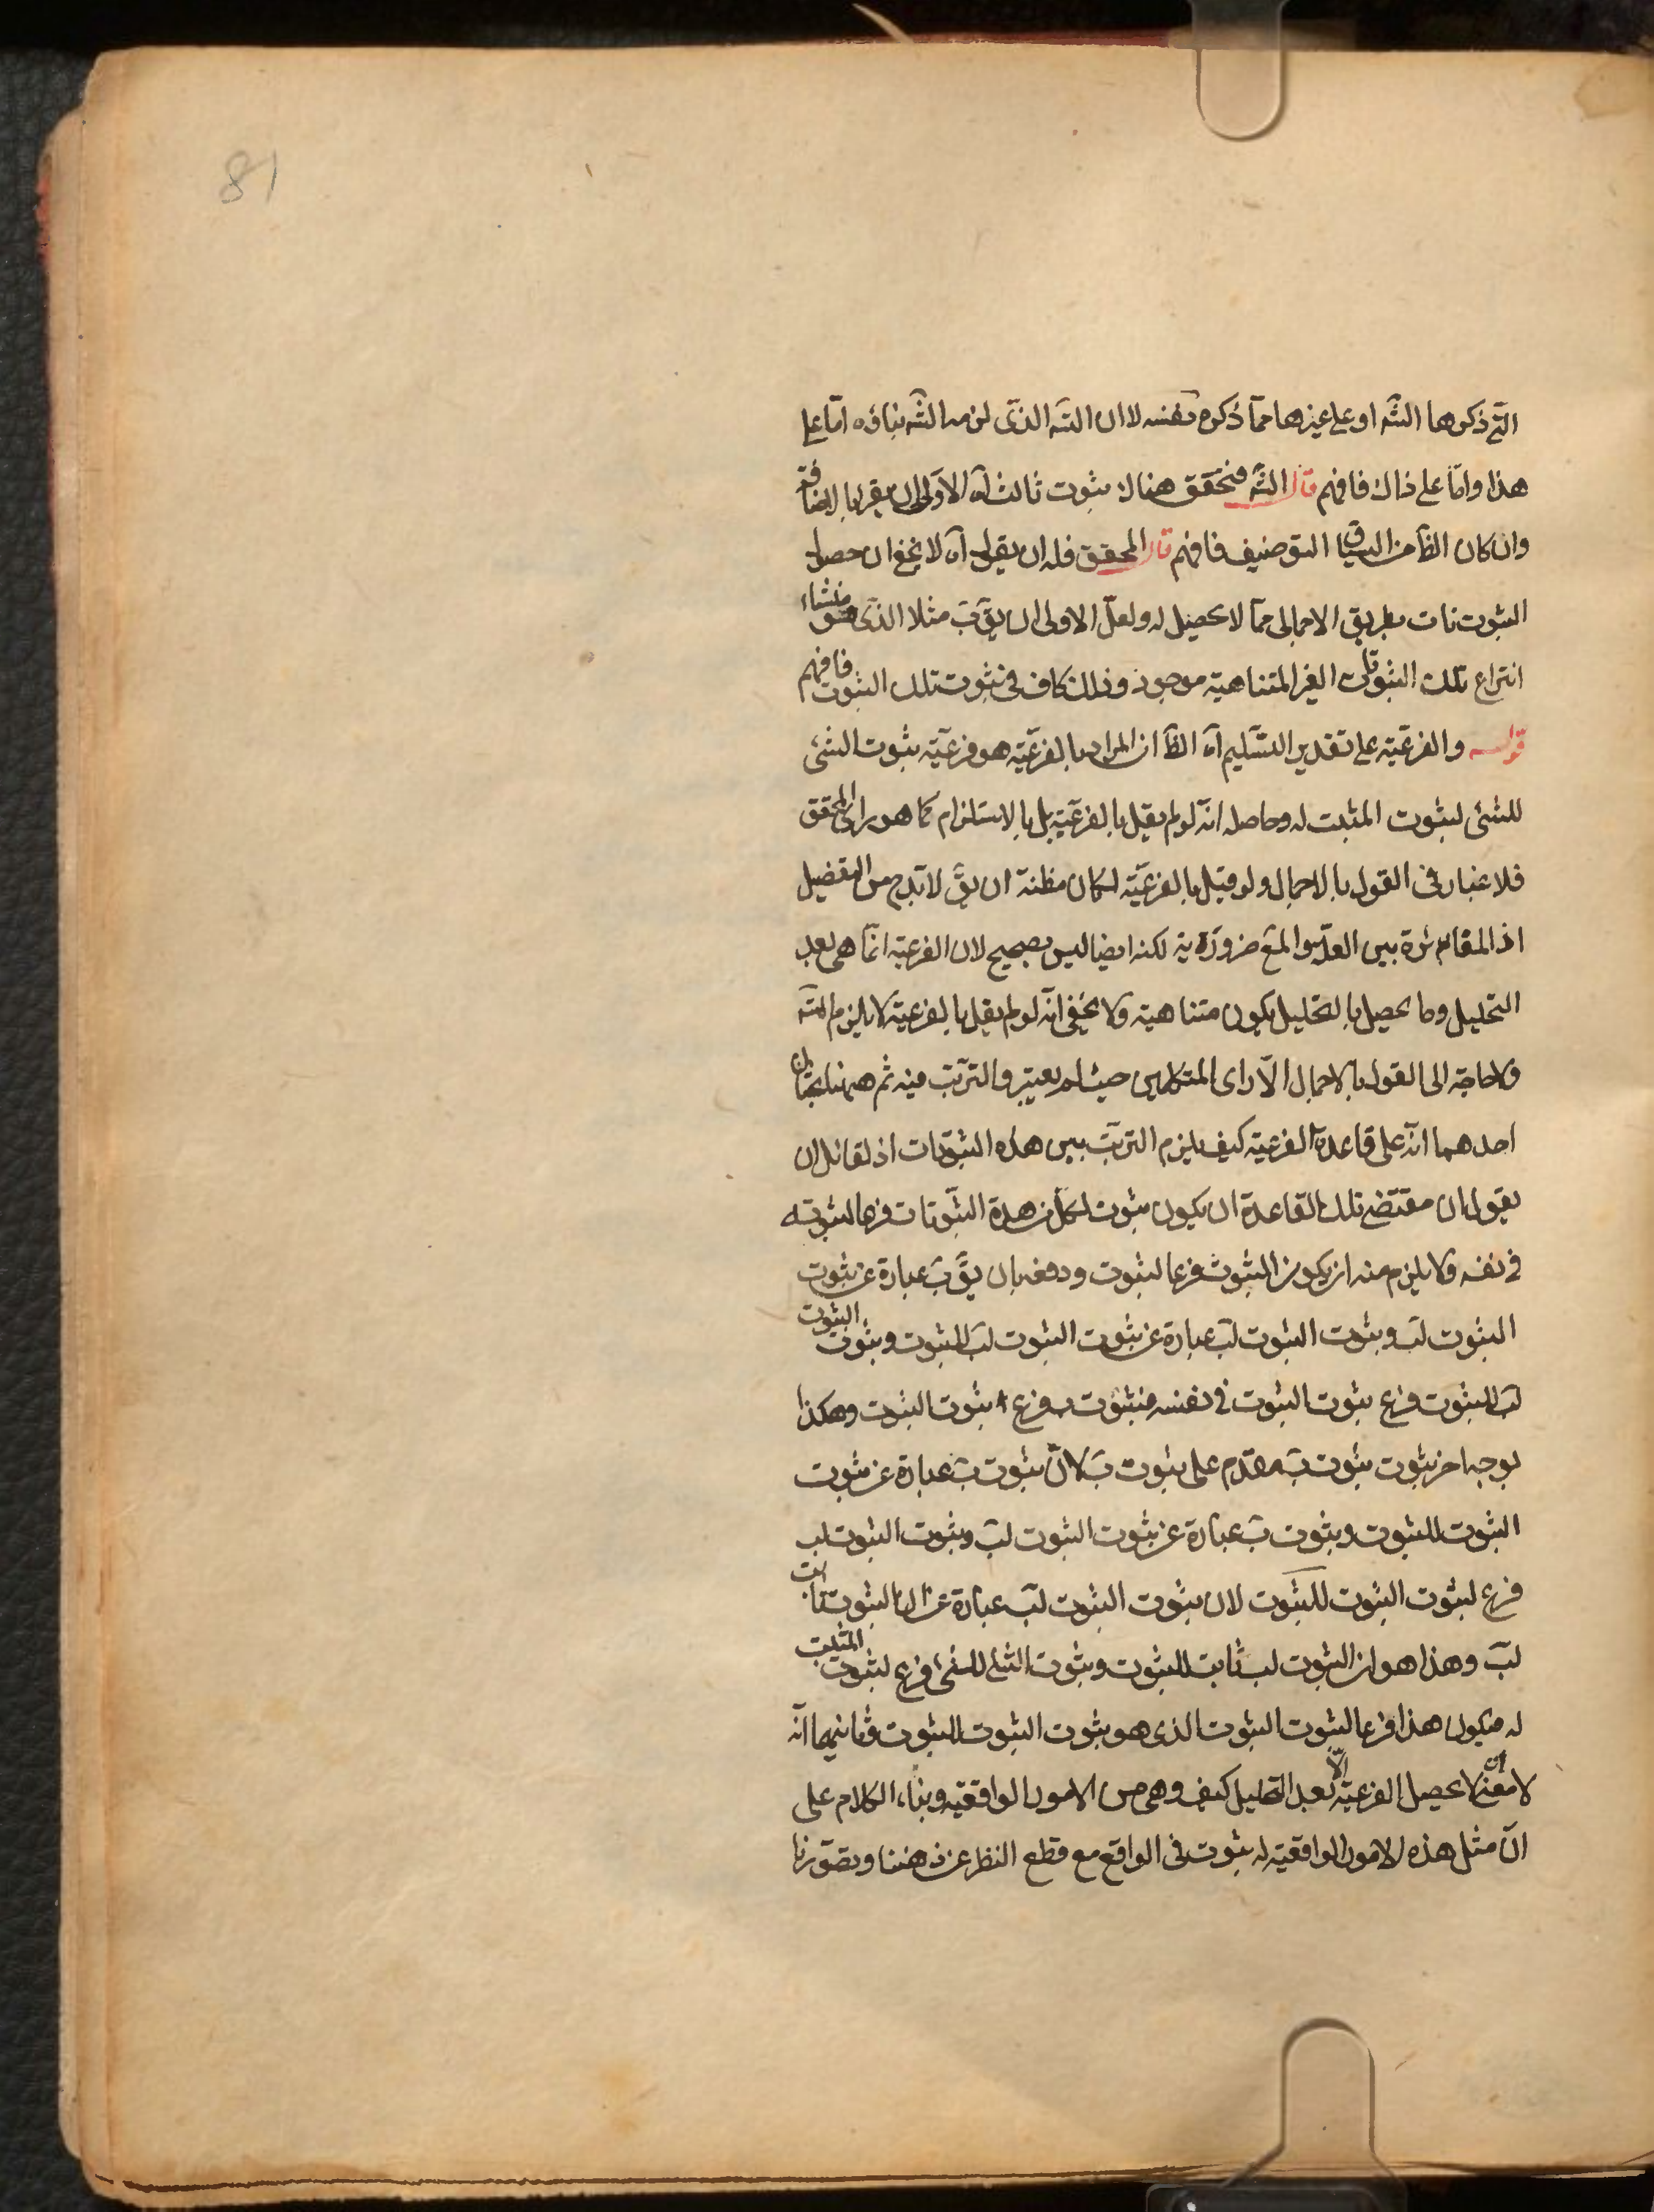 81
التی ذکرها الشه او علی غیرها مما ذکره نفسه لا ان الشه الذی لزمه الشه بناؤه اما علی
هذا واما علی ذاک فافهم قال الشه فتحقق هناک ثبوت ثالث آه الاولی ان یقرا بالاضافة
وان کان الظ من السیاق التوصیف فافهم قال المحقق فله ان یقول آه لا یخفی ان حصول
الثبوتات بطریق الاجمالی مما لا تحصیل له ولعل الاولی ان یق ب مثلا الذی هو منشاء
انتزاع تلک الثبوتات الغیر المتناهیة موجود وذلک کاف فی ثبوت تلک الثبوت فافهم
قوله والفرعیة علی تقدیر التسلیم آه الظ ان المراد بالفرعیة هو فرعیة ثبوت الشئ
للشئ لثبوت المثبت له وحاصله انه لو لم یقل بالفرعیة بل بالاستلزام کما هو رای المحقق
فلا غبار فی القول بالاجمال ولو قیل بالفرعیة لکان مظنة ان یق لا بد من التفضیل
اذ المقام بین العلة والمع ضروریة لکنه ایضا لیس بصحیح لان الفرعیة انما هی بعد
التحلیل وما یحصل بالتحلیل یکون متناهیة ولا یخفی انه لو لم یقل بالفرعیة لا یلزم التسه
ولا حاجة الی القول بالاجمال الا رای المتکلمین حیث لم یعتبروا الترتب فیه ثم ههنا بحثان
احدهما انه علی قاعدة الفرعیة کیف یلزم الترتب بین هذه الثبوتات اذ لقائل ان
یقول ان مقتضی تلک القاعدة ان یکون ثبوت لکل من هذه الثبوتات فرعا لثبوته
فی نفسه ولا یلزم منه ان یکون الثبوت فرعا لثبوت ودفعه بان یق ب عبارة عن ثبوت
الثبوت لب وثبوت الثبوت لب عبارة عن ثبوت الثبوت لب للثبوت وثبوت الثبوت
لب للثبوت فرع ثبوت الثبوت فی نفسه فثبوت ب فرع ثبوت الثبوت وهکذا
بوجه اخر ثبوت ثبوت ب مقدم علی ثبوت ب لان ثبوت ب عبارة عن ثبوت
الثبوت للثبوت وثبوت ب عبارة عن ثبوت الثبوت لب وثبوت الثبوت لب
فرع لثبوت الثبوت للثبوت لان ثبوت الثبوت لب عبارة عن ان الثبوت ثابت
لب وهذا هو ان الثبوت لب ثابت للثبوت وثبوت الشئ للشئ فرع لثبوت المثبت
له فیکون هذا فرعا لثبوت الثبوت الذی هو ثبوت الثبوت للثبوت وثانیهما انه
لا معنی لان لا یحصل الفرعیة الا بعد التحلیل کیف وهی من الامور الواقعیة وبناء الکلام علی
ان مثل هذه الامور الواقعیة له ثبوت فی الواقع مع قطع النظر عن ذهننا وتصورنا